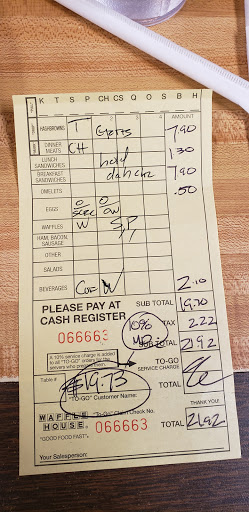 K T S P CH CS Q O S B H
HASHBROWNS T Grits AMOUNT 7.90
DINNER MEATS CH 1.30
LUNCH SANDWICHES hold
BREAKFAST SANDWICHES 7.90
OMELETS .50
EGGS
WAFFLES W
HAM, BACON, SAUSAGE
OTHER
SALADS
BEVERAGES W 2.10
PLEASE PAY AT SUB TOTAL 19.70
CASH REGISTER TAX 2.22
066663 10% SUB TOTAL 21.92
A 10% service charge is added
to all "TO-GO" orders for the
servers who prepare them.
TO-GO
SERVICE CHARGE
Table # $19.73 TOTAL
"TO-GO" Customer Name:
THANK YOU!
WAFFLE HOUSE "To-Go" Claim Check No.
066663 TOTAL 21.92
"GOOD FOOD FAST"®
Your Salesperson: